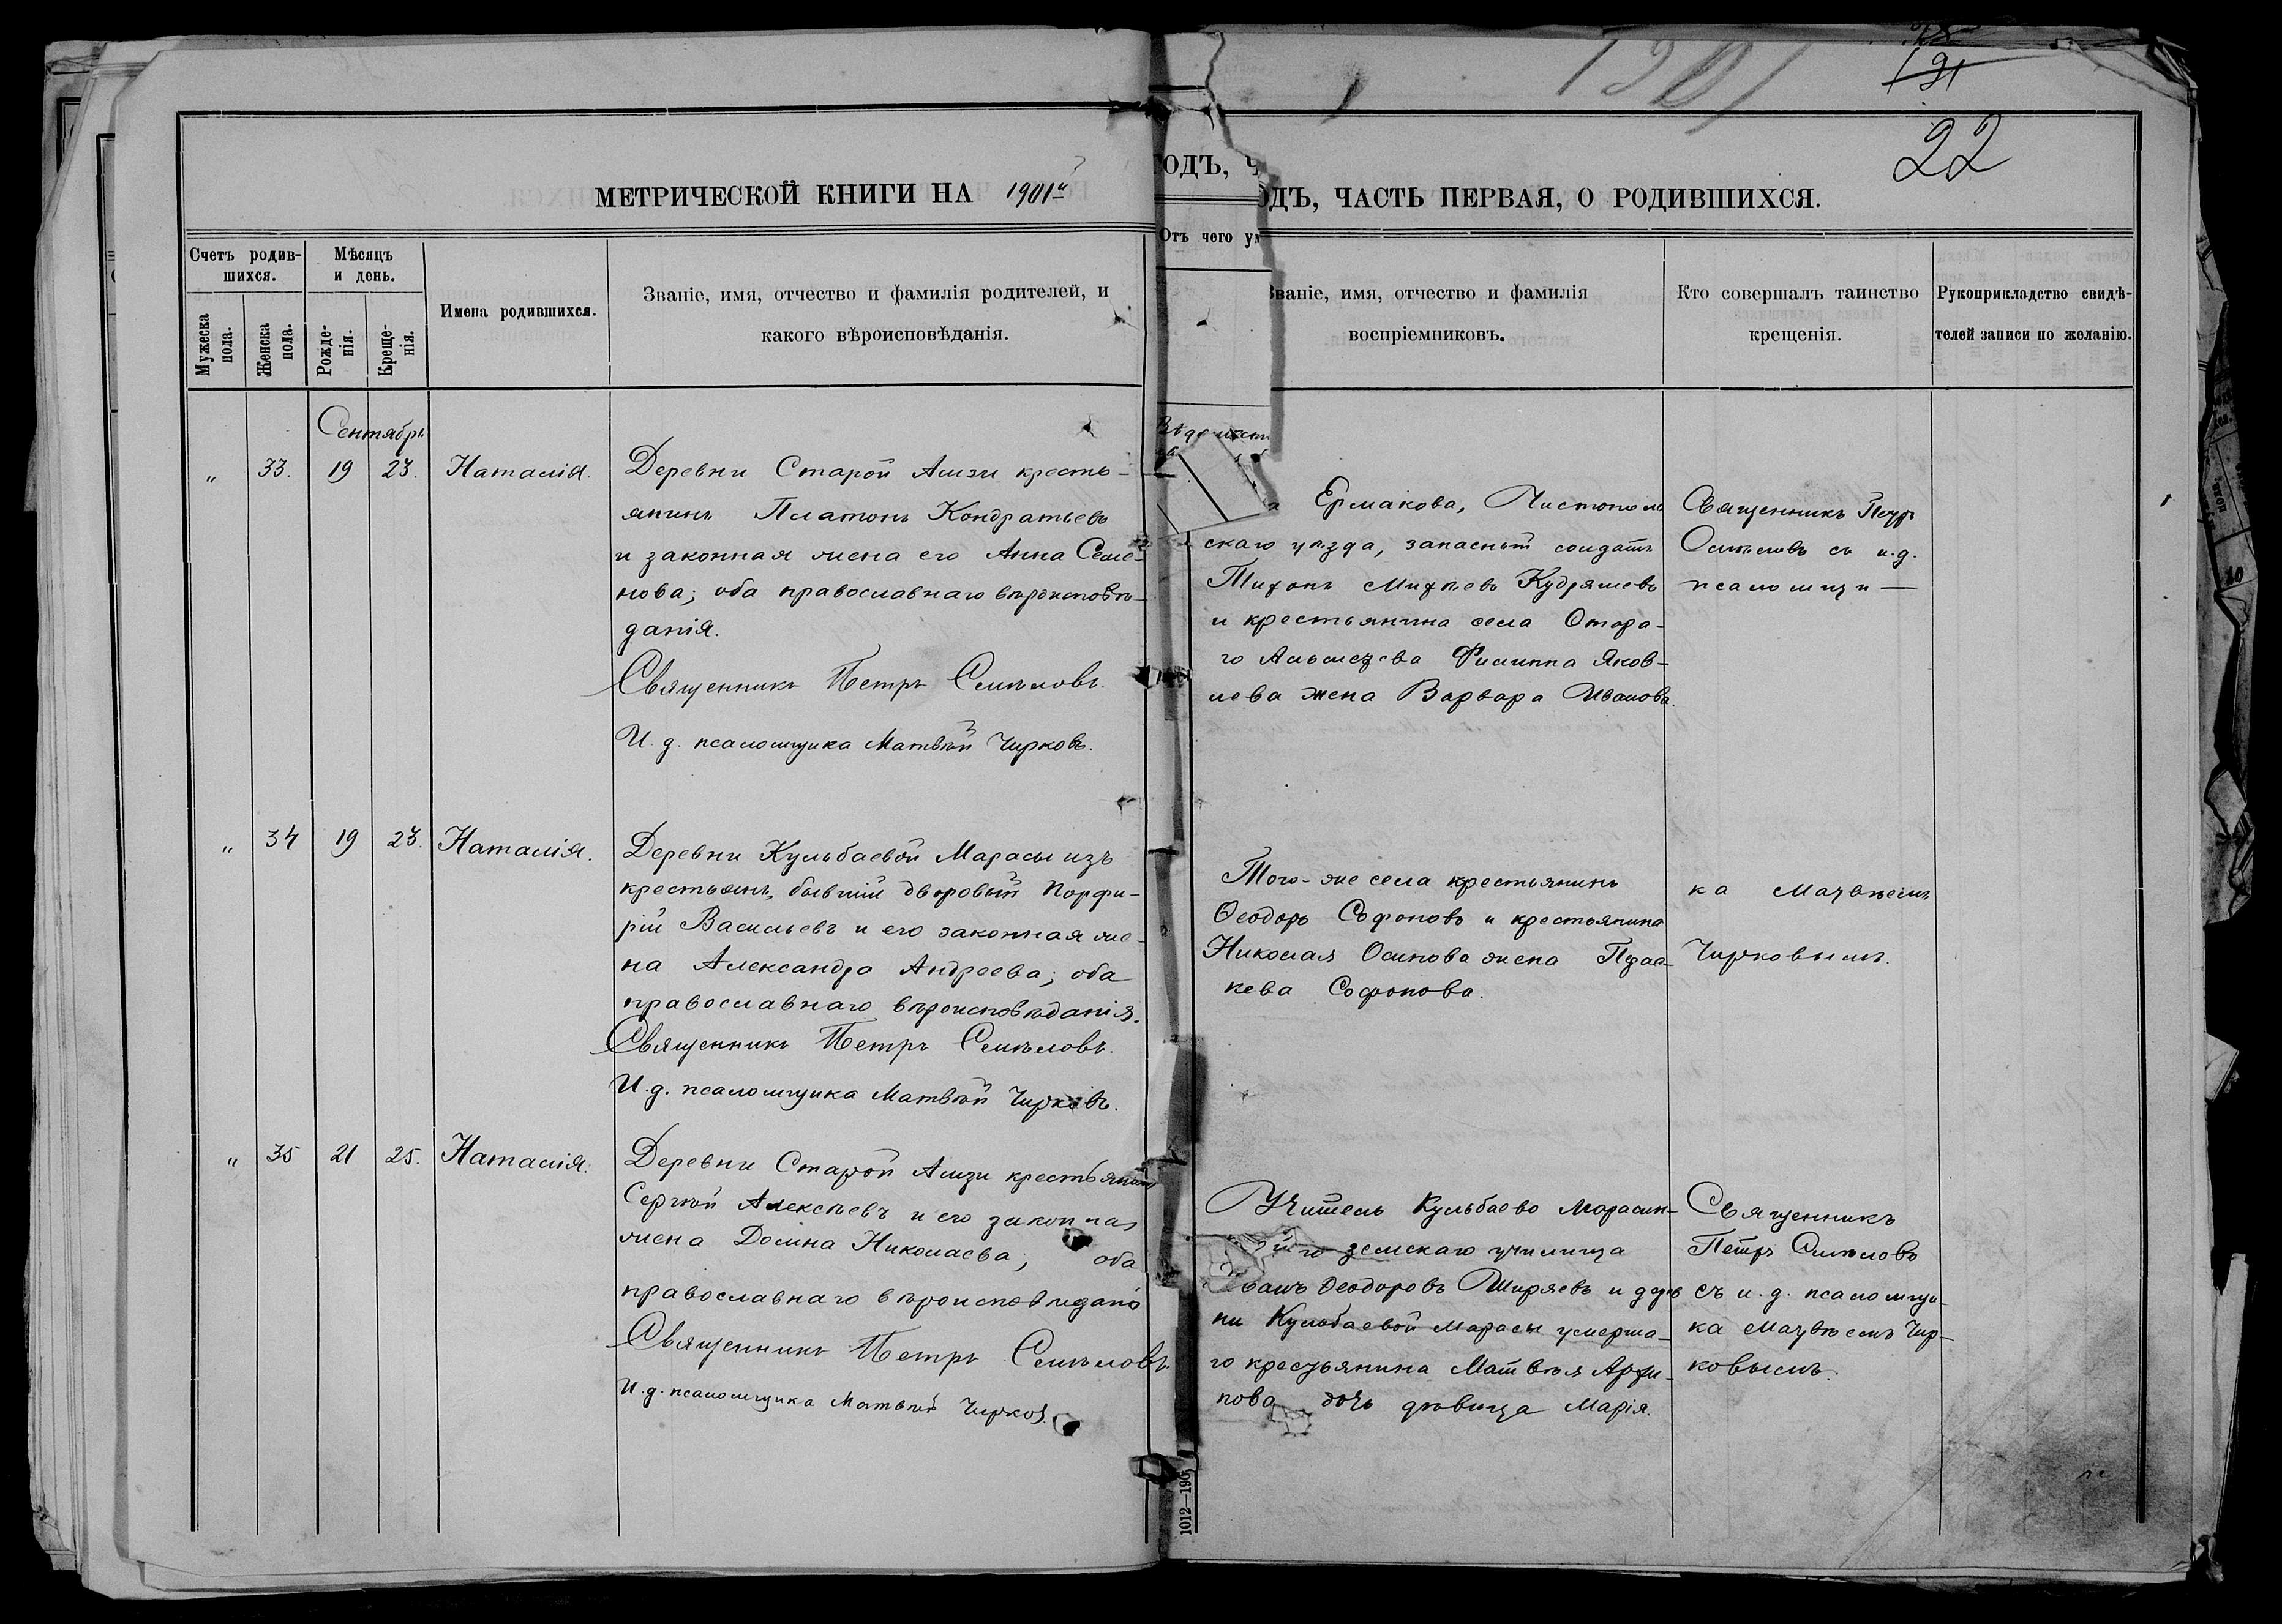 1901
191
22
МЕТРИЧЕСКОЙ КНИГИ НА 1901й
ОДЪ, Ч
ОДЪ, ЧАСТЬ ПЕРВАЯ, О РОДИВШИХСЯ.
Счетъ родив-
шихся.
Мужеска
пола.
Женска
пола.
Мѣсяцъ
и день.
Рожде-
нія.
Креще-
нія.
Имена родившихся.
Званіе, имя, отчество и фамилія родителей, и
какого вѣроисповѣданія.
Отъ чего ум
Званіе, имя, отчество и фамилія
воспріемниковъ.
Кто совершалъ таинство
крещенія.
Рукоприкладство свидѣ-
телей записи по желанію.
Сентябрь
" 33. 19 23. Наталія.
Деревни Старой Амзи кресть-
янинъ Платонъ Кондратьевъ
и законная жена его Анна Семе-
нова; оба православнаго вѣроисповѣ-
данія.
Священникъ Петръ Смѣловъ.
И. д. псаломщика Матвѣй Чирковъ.
а Ермакова, Чистополь
скаго уѣзда, запасный солдатъ
Тихонъ Михѣевъ Кудряшевъ
и крестьянина села Стара-
го Альметева Филиппа Яков-
лева жена Варвара Иванова.
Священникъ Петръ
Смѣловъ съ и.д.
псаломщи —
" 34 19 23. Наталія.
Деревни Кульбаевой Марасы изъ
крестьянъ, бывшій дворовый Порфи-
рій Васильевъ и его законная же-
на Александра Андреева; оба
православнаго вѣроисповѣданія.
Священникъ Петръ Смѣловъ.
И. д. псаломщика Матвѣй Чирковъ.
Того-же села крестьянинъ
Ѳеодоръ Софоновъ и крестьянина
Николая Осипова жена
Софонова.
ка Матвѣемъ
Чирковымъ.
" 35 21 25. Наталія.
Деревни Старой Амзи крестьянинъ
Сергѣй Алексѣевъ и его законная
жена Домна Николаева; оба
православнаго вѣроисповѣданія
Священникъ Петръ Смѣловъ.
И. д. псаломщика Матвѣй Чирков.
Учитель Кульбаево Марасин-
земскаго училища
Ѳеодоровъ Ширяевъ и дерев
ни Кульбаевой Марасы умерша-
го крестьянина Матвѣя Архи-
пова дочь дѣвица Марія.
Священникъ
Петръ Смѣловъ
съ и. д. псаломщи-
ка Матвѣемъ Чир-
ковымъ.
1012—190